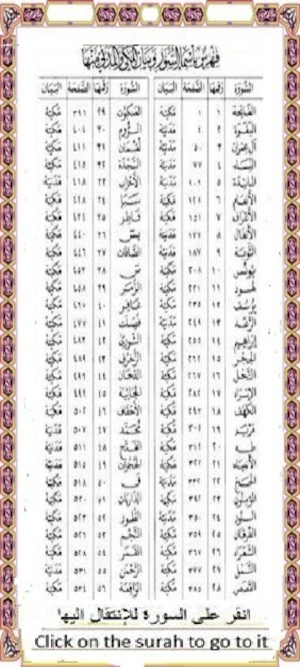 فهرس بأسماء السور وبيان المكي والمدني منها
السورة رقمها الصفحة البيان السورة رقمها الصفحة البيان
الفاتحة ١ ١ مكية العنكبوت ٢٩ ٣٩٦ مكية
البقرة ٢ ٢ مدنية الروم ٣٠ ٤٠٤ مكية
آل عمران ٣ ٥٠ مدنية لقمان ٣١ ٤١١ مكية
النساء ٤ ٧٧ مدنية السجدة ٣٢ ٤١٥ مكية
المائدة ٥ ١٠٦ مدنية الأحزاب ٣٣ ٤١٨ مدنية
الأنعام ٦ ١٢٨ مكية سبأ ٣٤ ٤٢٨ مكية
الأعراف ٧ ١٥١ مكية فاطر ٣٥ ٤٣٤ مكية
الأنفال ٨ ١٧٧ مدنية يس ٣٦ ٤٤٠ مكية
التوبة ٩ ١٨٧ مدنية الصافات ٣٧ ٤٤٦ مكية
يونس ١٠ ٢٠٨ مكية ص ٣٨ ٤٥٣ مكية
هود ١١ ٢٢١ مكية الزمر ٣٩ ٤٥٨ مكية
يوسف ١٢ ٢٣٥ مكية غافر ٤٠ ٤٦٧ مكية
الرعد ١٣ ٢٤٩ مدنية فصلت ٤١ ٤٧٧ مكية
إبراهيم ١٤ ٢٥٥ مكية الشورى ٤٢ ٤٨٣ مكية
الحجر ١٥ ٢٦٢ مكية الزخرف ٤٣ ٤٨٩ مكية
النحل ١٦ ٢٦٧ مكية الدخان ٤٤ ٤٩٦ مكية
الإسراء ١٧ ٢٨٢ مكية الجاثية ٤٥ ٤٩٩ مكية
الكهف ١٨ ٢٩٣ مكية الأحقاف ٤٦ ٥٠٢ مكية
مريم ١٩ ٣٠٥ مكية محمد ٤٧ ٥٠٧ مدنية
طه ٢٠ ٣١٢ مكية الفتح ٤٨ ٥١١ مدنية
الأنبياء ٢١ ٣٢٢ مكية الحجرات ٤٩ ٥١٥ مدنية
الحج ٢٢ ٣٣٢ مدنية ق ٥٠ ٥١٨ مكية
المؤمنون ٢٣ ٣٤٢ مكية الذاريات ٥١ ٥٢٠ مكية
النور ٢٤ ٣٥٠ مدنية الطور ٥٢ ٥٢٣ مكية
الفرقان ٢٥ ٣٥٩ مكية النجم ٥٣ ٥٢٦ مكية
الشعراء ٢٦ ٣٦٧ مكية القمر ٥٤ ٥٢٨ مكية
النمل ٢٧ ٣٧٧ مكية الرحمن ٥٥ ٥٣١ مدنية
القصص ٢٨ ٣٨٥ مكية الواقعة ٥٦ ٥٣٤ مكية
انقر على السورة للإنتقال اليها
Click on the surah to go to it